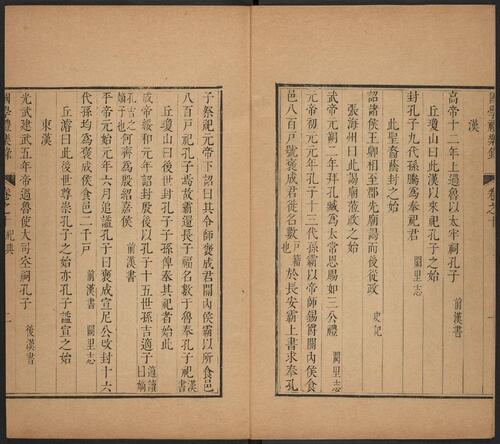 漢
高帝十二年上過魯以太牢祠孔子 前漢書
丘瓊山曰此漢以來祀孔子之始
封孔子九代孫騰為奉祀君 闕里志
此聖裔蔭封之始
詔諸侯王卿相至郡先廟謁而後從政 史記
張海州曰此謁廟蒞政之始
武帝元朔二年拜孔臧為太常恩賜如三公禮 闕里志
元帝初元年孔子十三代孫霸以帝師錫爵關內侯食
邑八百戶號褒成君徙名數戶籍也於長安霸上書求奉孔
子祭祀元帝下詔曰其令師褒成君關內侯霸以所食邑
八百戶祀孔子焉故霸還長子福名數于魯奉孔子祀漢書
丘瓊山曰後世封孔子子孫俾奉其祀者始此
成帝綏和元年詔封殷後以孔子十五世孫吉適子適讀曰嫡
孔吉之嫡子也何齊為殷紹嘉侯 前漢書
平帝元始元年六月追諡孔子曰褒成宣尼公改封十六
代孫均為褒成侯食邑二千戶 前漢書 闕里志
丘濬曰此後世尊崇孔子之始亦孔子諡宣之始
東漢
光武建武五年帝過魯使大司空祠孔子 後漢書